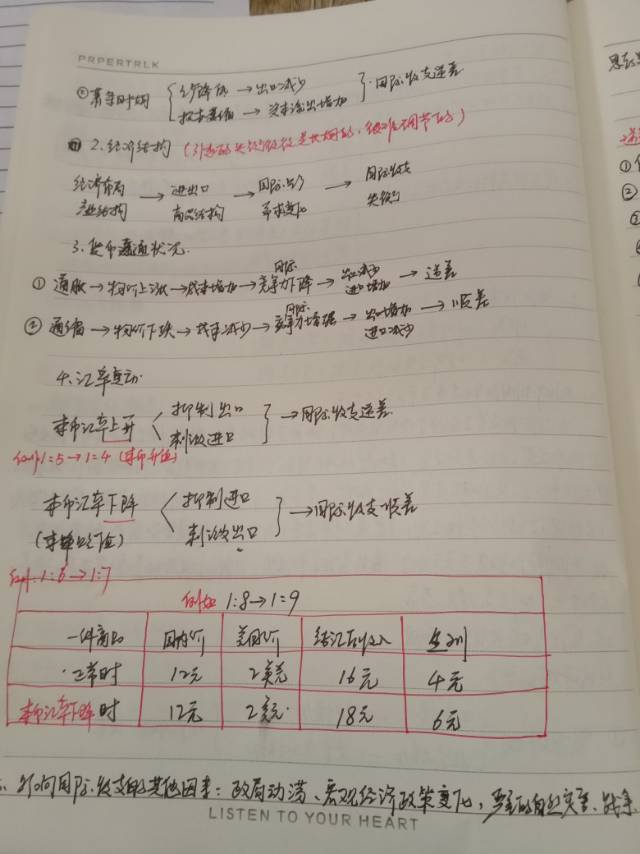 PRPERTRLK
②萧条时期 { 出口减少 资本流出增加 } 国际收支逆差
2.经济结构（
经济布局 产业结构 → 进出口商品结构 → 国际 → 国际收支失衡
3.货币
①通胀→物价上涨→成本增加→国际竞争力下降→出口减少 进口增加→逆差
②通缩→物价下跌→成本减少→国际竞争力增强→出口增加 进口减少→顺差
4.汇率变动
本币汇率上升 < 抑制出口 刺激进口 } →国际收支逆差
1:5→1:4（本币升值）
本币汇率下降 < 抑制进口 刺激出口 } →国际收支顺差
1:7
例如 1:8→1:9
一件商品 国内价 美国价 结汇后收入
正常时 12元 2美元 16元 4元
本币汇率下降时 12元 2美元 18元 6元
影响国际收支的其他因素：政局动荡、宏观经济政策变化，严重的自然灾害、战争
LISTEN TO YOUR HEART
①
②